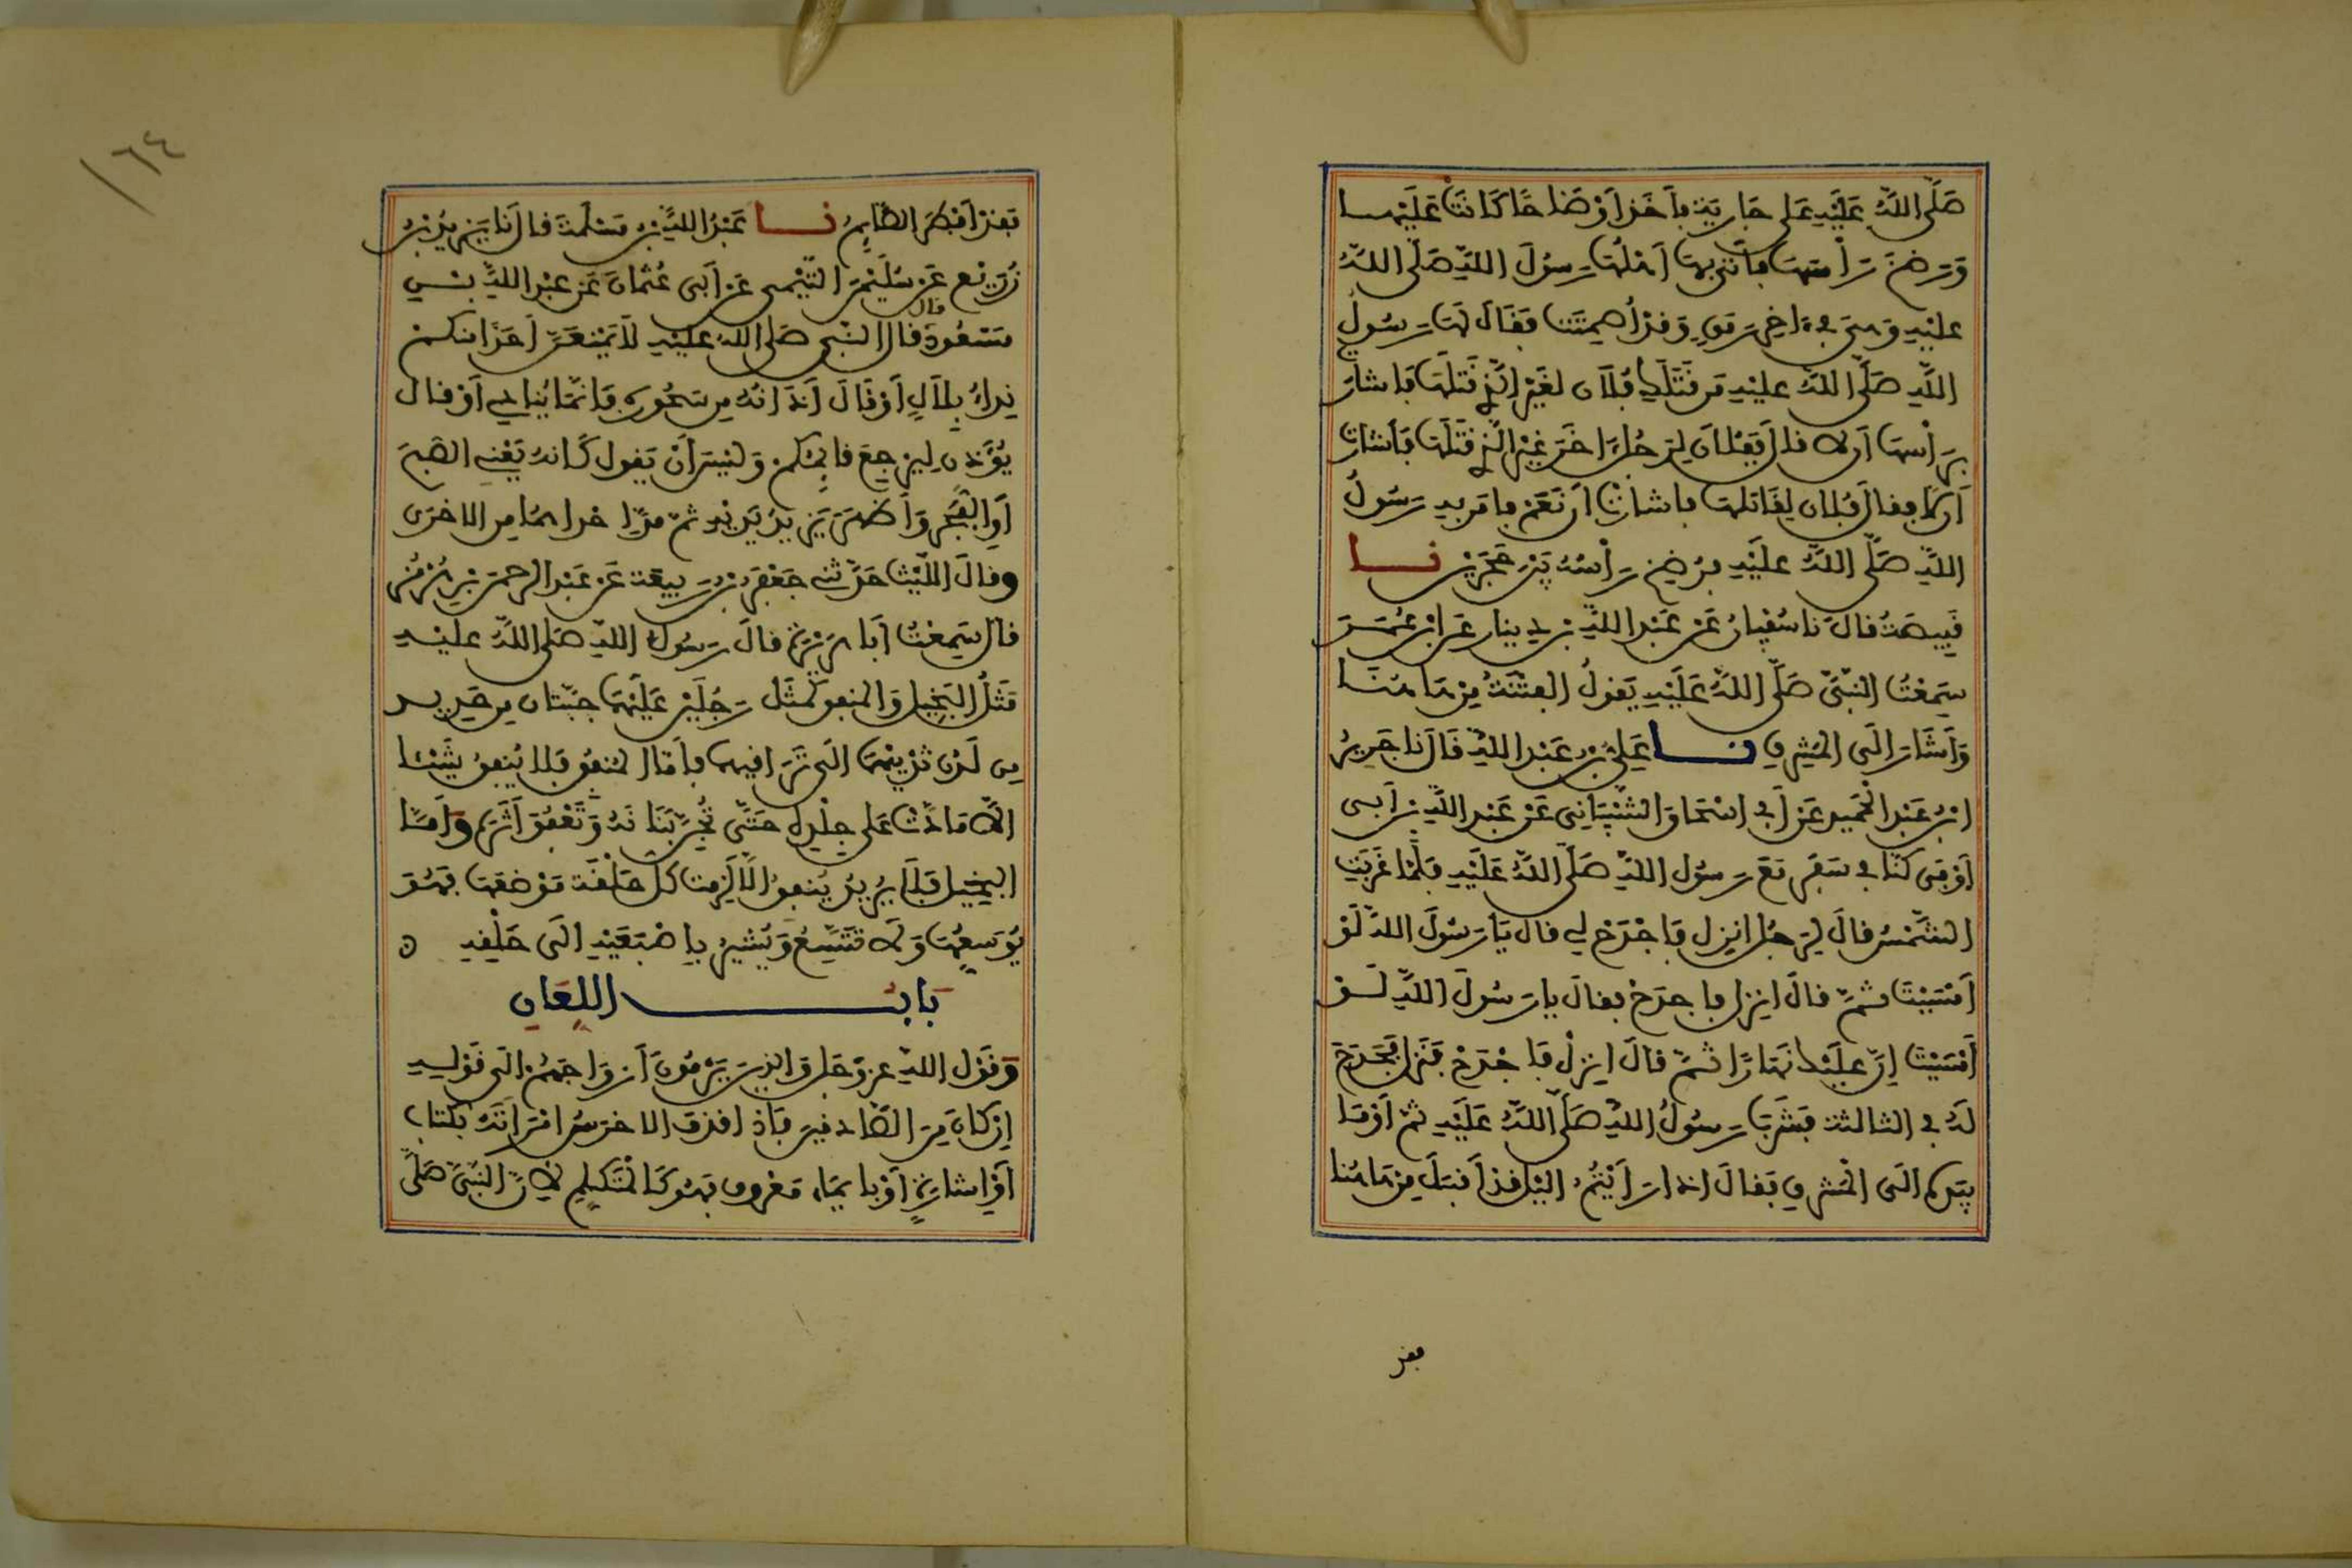 صَلَّى اللَّهُ عَلَيْهِ عَلَى جَارِيَةٍ فَأَخَذَ أَوْضَاحًا كَانَتْ عَلَيْهَا
وَرَضَخَ رَأْسَهَا فَأَتَى بِهَا أَهْلُهَا رَسُولَ اللَّهِ صَلَّى اللَّهُ
عَلَيْهِ وَهِيَ فِي ءَاخِرِ رَمَقٍ وَقَدْ أُصْمِتَتْ فَقَالَ لَهَا رَسُولُ
اللَّهِ صَلَّى اللَّهُ عَلَيْهِ مَنْ قَتَلَكِ فُلَانٌ لِغَيْرِ الَّذِي قَتَلَهَا فَأَشَارَتْ
بِرَأْسِهَا أَن لَا قَالَ فَقَالَ لِرَجُلٍ ءَاخَرَ غَيْرِ الَّذِي قَتَلَهَا فَأَشَارَتْ
أَن لَا فَقَالَ فَفُلَانٌ لِقَاتِلِهَا فَأَشَارَتْ أَنْ نَعَمْ فَأَمَرَ بِهِ رَسُولُ
اللَّهِ صَلَّى اللَّهُ عَلَيْهِ فَرُضِخَ رَأْسُهُ بَيْنَ حَجَرَيْنِ نا
قَبِيصَةُ قَالَ نا سُفْيَانُ عَنْ عَبْدِ اللَّهِ بْنِ دِينَارٍ عَنِ ابْنِ عُمَرَ
سَمِعْتُ النَّبِيَّ صَلَّى اللَّهُ عَلَيْهِ يَقُولُ الْفِتْنَةُ مِنْ هَاهُنَا
وَأَشَارَ إِلَى الْمَشْرِقِ نا عَلِيُّ بْنُ عَبْدِ اللَّهِ قَالَ نا جَرِيرُ
ابْنُ عَبْدِ الْحَمِيدِ عَنْ أَبِي إِسْحَاقَ الشَّيْبَانِي عَنْ عَبْدِ اللَّهِ بْنِ أَبِي
أَوْفَى كُنَّا فِي سَفَرٍ مَعَ رَسُولِ اللَّهِ صَلَّى اللَّهُ عَلَيْهِ فَلَمَّا غَرَبَتِ
الشَّمْسُ قَالَ لِرَجُلٍ انْزِلْ فَاجْدَحْ لِي قَالَ يَا رَسُولَ اللَّهِ لَوْ
أَمْسَيْتَ ثُمَّ قَالَ انْزِلْ فَاجْدَحْ فَقَالَ يَا رَسُولَ اللَّهِ لَوْ
أَمْسَيْتَ إِنَّ عَلَيْكَ نَهَارًا ثُمَّ قَالَ انْزِلْ فَاجْدَحْ فَنَزَلَ فَجَدَحَ
لَهُ فِي الثَّالِثَةِ فَشَرِبَ رَسُولُ اللَّهِ صَلَّى اللَّهُ عَلَيْهِ ثُمَّ أَوْمَأَ
بِيَدِهِ إِلَى الْمَشْرِقِ فَقَالَ إِذَا رَأَيْتُمُ الَّيْلَ قَدْ أَقْبَلَ مِنْ هَاهُنَا
فقد
١٦٤
فَقَدْ أَفْطَرَ الصَّائِمُ نا عَبْدُ اللَّهِ بْنُ مَسْلَمَةَ قَالَ نا يَزِيدُ بْنُ
زُرَيْعٍ عَنْ سُلَيْمَنَ التَّيْمِي عَنْ أَبِي عُثْمَانَ عَنْ عَبْدِ اللَّهِ بْنِ
قال
مَسْعُودٍ قَالَ النَّبِيُّ صَلَّى اللَّهُ عَلَيْهِ لَا يَمْنَعَنَّ أَحَدًا مِنْكُمْ
نِدَاءُ بِلَالٍ أَوْ قَالَ أَذَانُهُ مِنْ سَحُورِهِ فَإِنَّمَا يُنَادِي أَوْ قَالَ
يُؤَذِّنُ لِيَرْجِعَ قَائِمُكُمْ وَلَيْسَ أَنْ يَقُولَ كَأَنَّهُ يَعْنِي الصُّبْحَ
أَوِ الْفَجْرَ وَأَظْهَرَ يَزِيدُ يَدَيْهِ ثُمَّ مَدَّ إِحْدَاهُمَا مِنَ الْأُخْرَى
وقَالَ اللَّيْثُ حَدَّثَنِي جَعْفَرُ بْنُ رَبِيعَةَ عَنْ عَبْدِ الرَّحْمَنِ بْنِ هُرْمُزَ
قَالَ سَمِعْتُ أَبَا هُرَيْرَةَ قَالَ رَسُولُ اللَّهِ صَلَّى اللَّهُ عَلَيْهِ
مَثَلُ الْبَخِيلِ وَالْمُنْفِقِ كَمَثَلِ رَجُلَيْنِ عَلَيْهِمَا جُبَّتَانِ مِنْ حَدِيدٍ
مِن لَّدُنْ ثَدْيَيْهِمَا إِلَى تَرَاقِيهِمَا فَأَمَّا الْمُنْفِقُ فَلَا يُنْفِقُ شَيْئًا
إِلَّا مَادَّتْ عَلَى جِلْدِهِ حَتَّى تُجِنَّ بَنَانَهُ وَتَعْفُوَ أَثَرَهُ وَأَمَّا
الْبَخِيلُ فَلَا يُرِيدُ يُنْفِقُ إِلَّا لَزِمَتْ كُلُّ حَلْقَةٍ مَوْضِعَهَا فَهُوَ
يُوَسِّعُهَا وَلَا تَتَّسِعُ وَيُشِيرُ بِإِصْبَعَيْهِ إِلَى حَلْقِهِ ۵
بَابُ اللِّعَانِ
وَقَوْلِ اللَّهِ عَزَّ وَجَلَّ وَالَّذِينَ يَرْمُونَ أَزْوَاجَهُمْ إِلَى قَوْلِهِ
إِن كَانَ مِنَ الصَّادِقِينَ فَإِذَا قَذَفَ الْأَخْرَسُ امْرَأَتَهُ بِكِتَابٍ
أَوْ إِشَارَةٍ أَوْ بِإِيمَاءٍ مَعْرُوفٍ فَهُوَ كَالْمُتَكَلِّمِ لِأَنَّ النَّبِيَّ صَلَّى